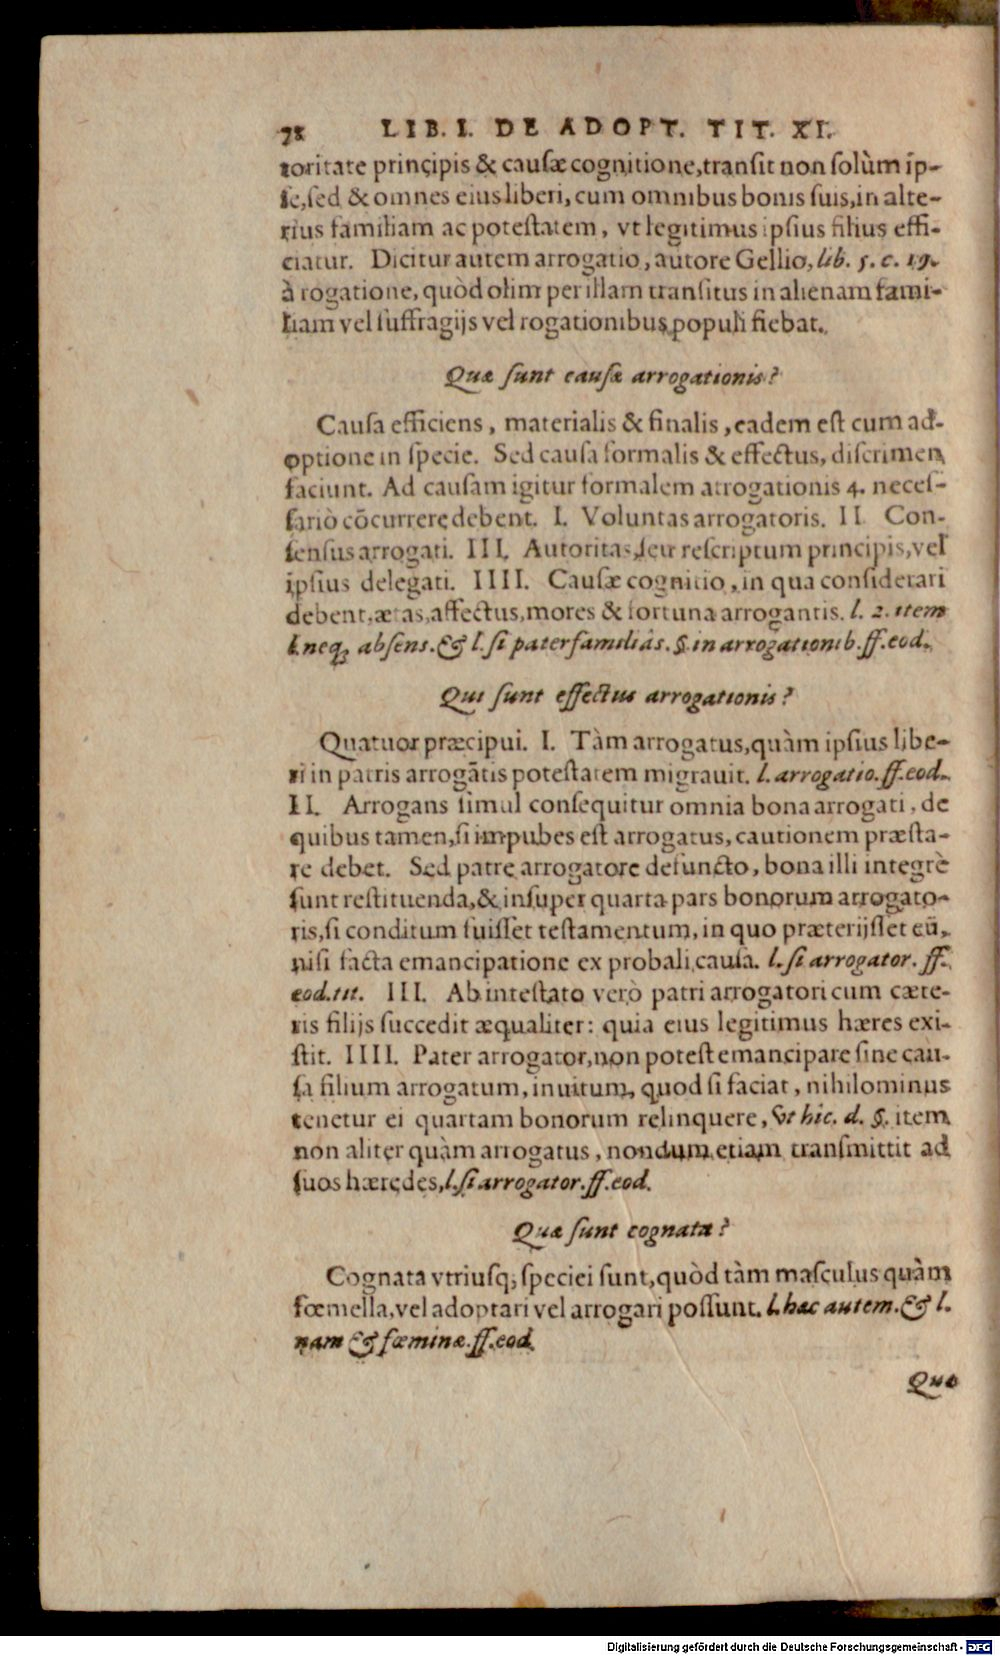 78 LIB. I. DE ADOPT. TIT. XI.
toritate principis & causæ cognitione, transit non solùm ip-
se, sed & omnes eius liberi, cum omnibus bonis suis, in alte-
rius familiam ac potestatem, vt legitimus ipsius filius effi-
ciatur. Dicitur autem arrogatio, autore Gellio, lib. 5. c. 19.
à rogatione, quòd olim per illam transitus in alienam fami-
liam vel suffragijs vel rogationibus populi fiebat.
Quæ sunt causæ arrogationis?
Causa efficiens, materialis & finalis, eadem est cum ad-
optione in specie. Sed causa formalis & effectus, discrimen
faciunt. Ad causam igitur formalem arrogationis 4. neces-
sariò cōcurrere debent. I. Voluntas arrogatoris. II Con-
sensus arrogati. III. Autoritas, seu rescriptum principis, vel
ipsius delegati. IIII. Causæ cognitio, in qua considerari
debent, ætas, affectus, mores & fortuna arrogantis. l. 2. item
l. neq; absens. & l. si paterfamiliâs. §. in arrogationib. ff. eod.
Qui sunt effectus arrogationis?
Quatuor præcipui. I. Tàm arrogatus, quàm ipsius libe-
ri in patris arrogātis potestatem migrauit. l. arrogatio. ff. eod.
II. Arrogans simul consequitur omnia bona arrogati, de
quibus tamen, si impubes est arrogatus, cautionem præsta-
re debet. Sed patre arrogatore defuncto, bona illi integrè
sunt restituenda, & insuper quarta pars bonorum arrogato-
ris, si conditum fuisset testamentum, in quo præterijsset eū,
nisi facta emancipatione ex probali causa. l. si arrogator. ff.
eod. tit. III. Ab intestato verò patri arrogatori cum cæte-
ris filijs succedit æqualiter: quia eius legitimus hæres exi-
stit. IIII. Pater arrogator, non potest emancipare sine cau-
sa filium arrogatum, inuitum, quod si faciat, nihilominus
tenetur ei quartam bonorum relinquere, vt hic. d. §. item
non aliter quàm arrogatus, nondum etiam transmittit ad
suos hæredes, l. si arrogator. ff. eod.
Quæ sunt cognata?
Cognata vtriusq; speciei sunt, quòd tàm masculus quàm
fœmella, vel adoptari vel arrogari possunt. l. hac autem. & l.
nam & fœminæ. ff. eod.
Quo
Digitalisierung gefördert durch die Deutsche Forschungsgemeinschaft - DFG